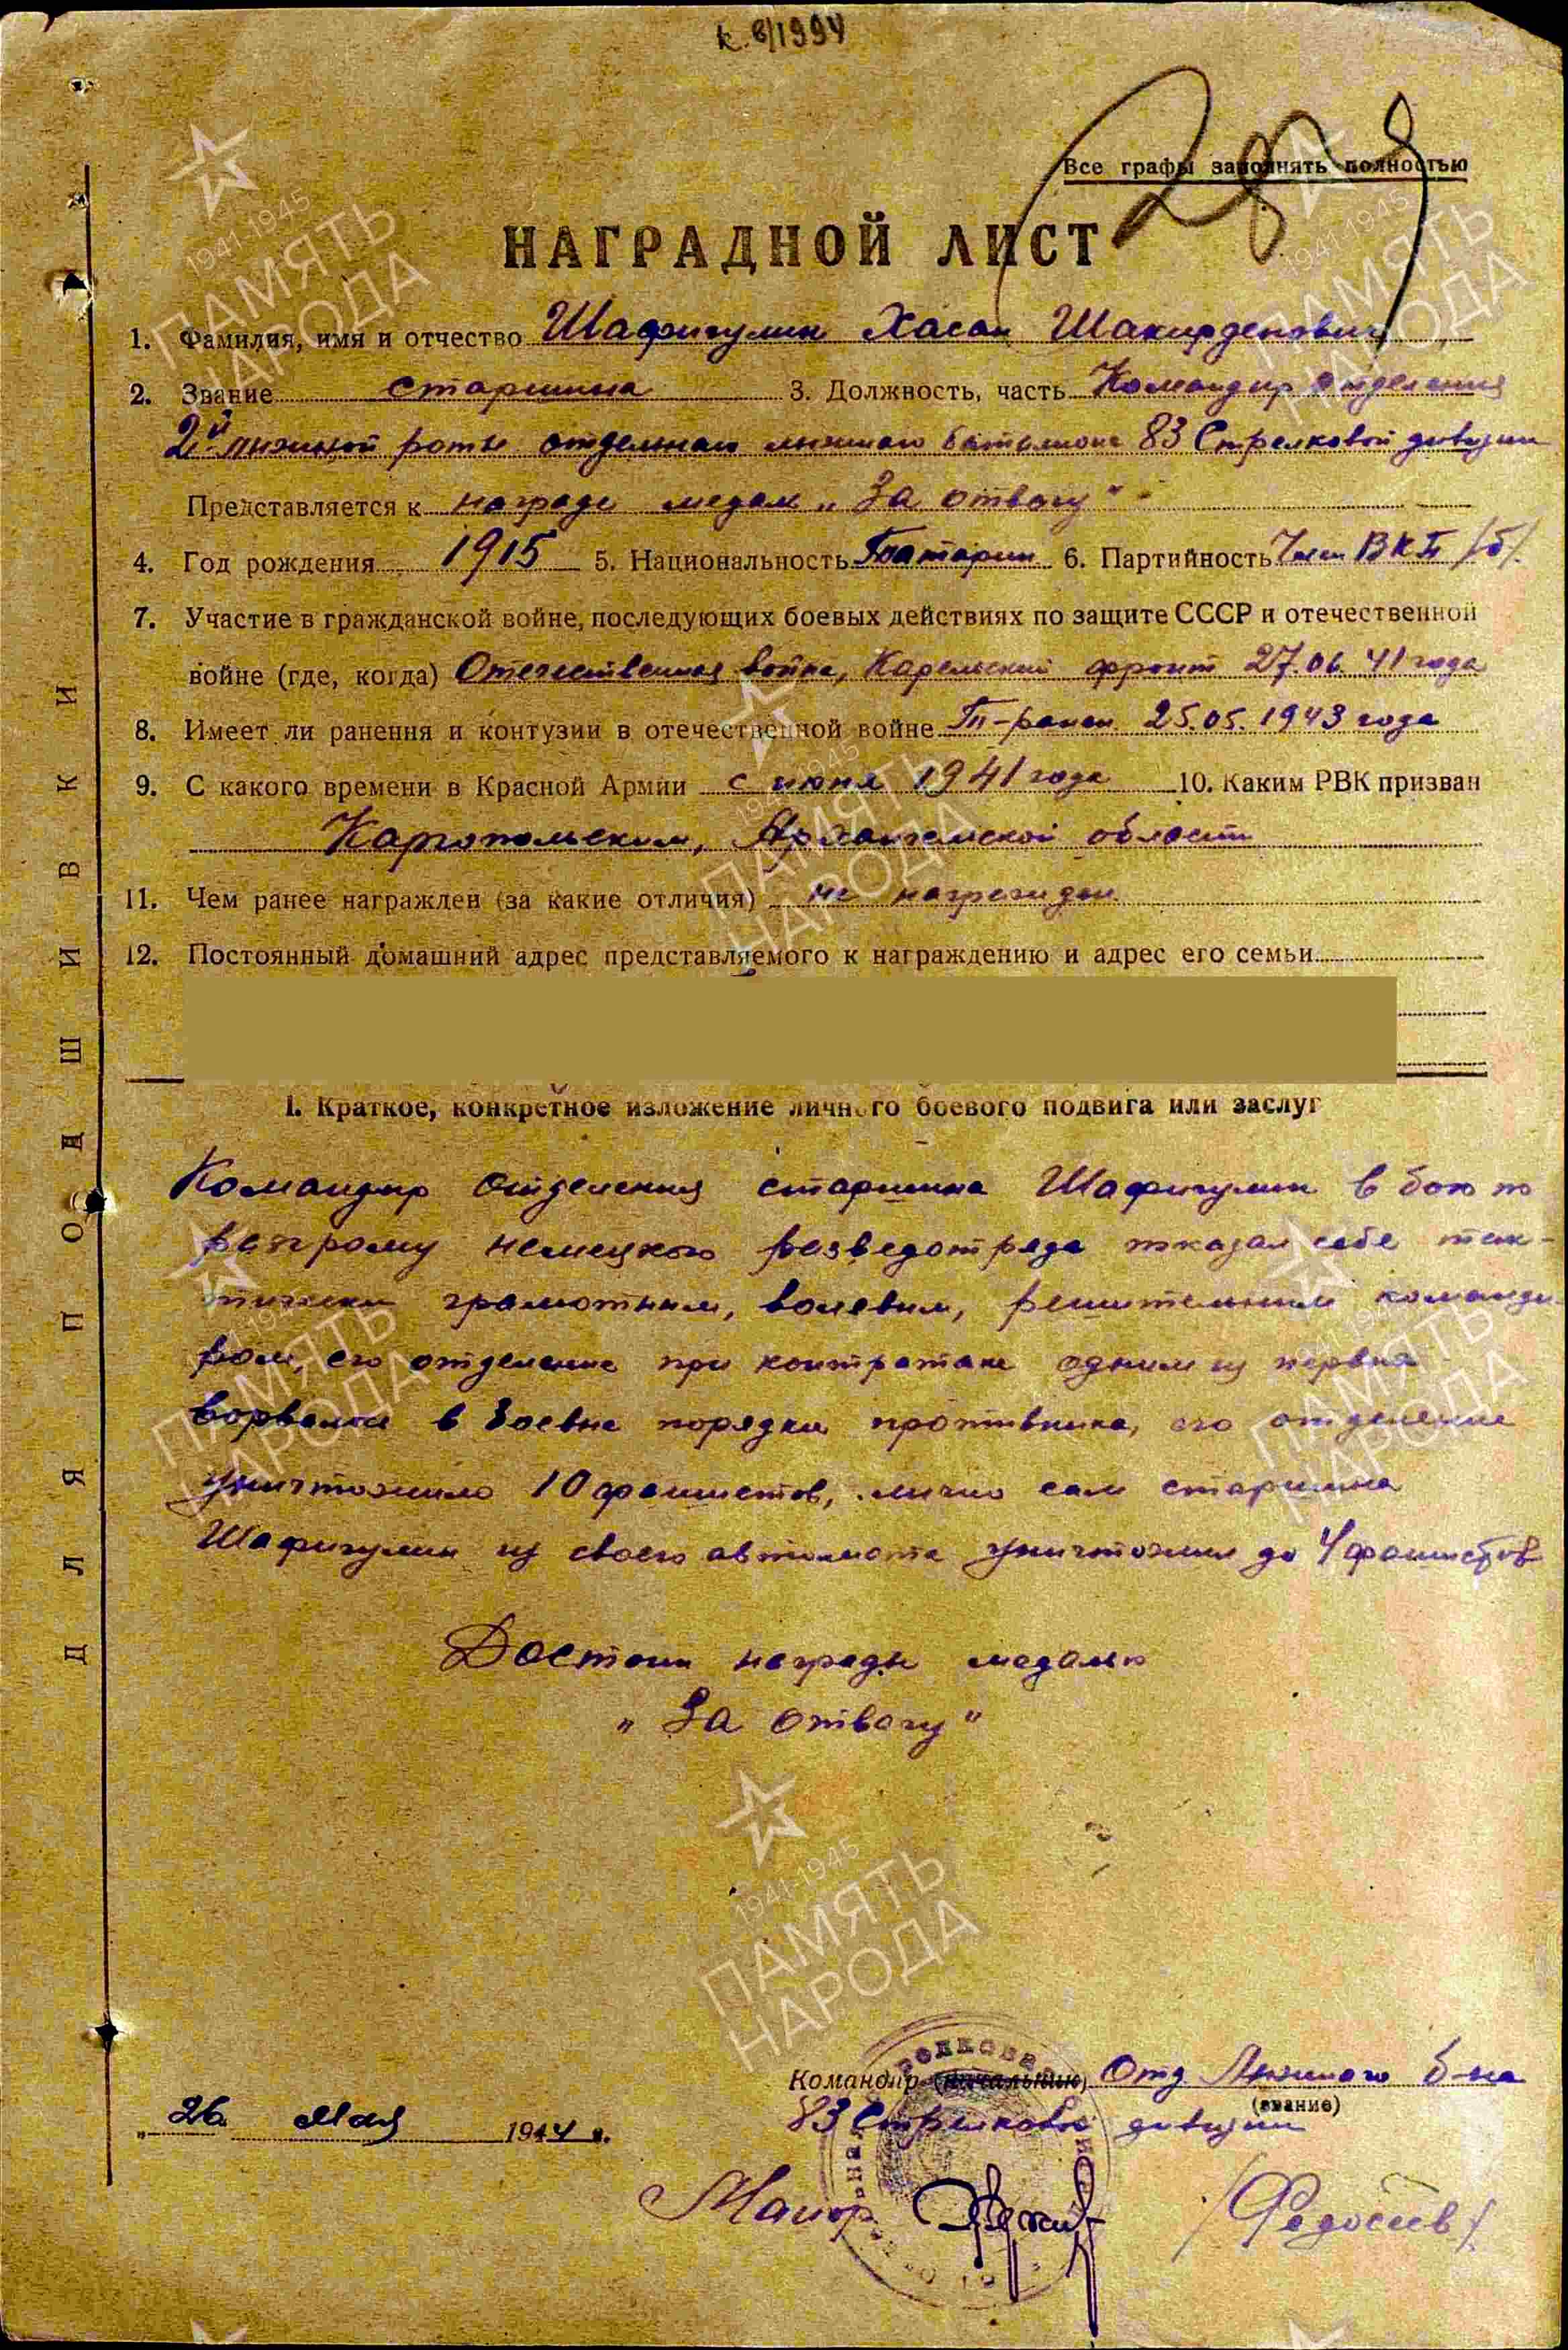 к. 8/1994
Все графы заполнять полностью
НАГРАДНОЙ ЛИСТ
1. Фамилия, имя и отчество Шафигулин Хасан Шакирденович
2. Звание старшина 3. Должность, часть Командир отделения
2й лыжной роты отдельного лыжного батальона 83 Стрелковой дивизии
Представляется к награде медал „За отвагу"
4. Год рождения 1915 5. Национальность Татарин 6. Партийность Член ВКП/б/
7. Участие в гражданской войне, последующих боевых действиях по защите СССР и отечественной
войне (где, когда) Отечественная война, Карельский фронт 27.06.41 года
8. Имеет ли ранения и контузии в отечественной войне ранен 25.05.1943 года
9. С какого времени в Красной Армии с июня 1941 года 10. Каким РВК призван
Каргопольским, Архангельской области
11. Чем ранее награжден (за какие отличия) не награжден
12. Постоянный домашний адрес представляемого к награждению и адрес его семьи
I. Краткое, конкретное изложение личного боевого подвига или заслуг
Командир отделения старшина Шафигулин в бою по
разгрому немецкого разведотряда показал себе так-
тически грамотным, волевым, решительным команди
ром, его отделение при контратаке одним из первых
ворвалось в боевые порядки противника, его отделение
уничтожило 10 фашистов, лично сам старшина
Шафигулин из своего автомата уничтожил до 4 фашистов
Достоин награды медалью
„За отвагу"
Командир (начальник) Отд Лыжного б-на
(звание)
83 Стрелковой дивизии
„26 мая 1944 г.
Майор /Федосеев/
ДЛЯ ПОДШИВКИ
1941-1945
ПАМЯТЬ
НАРОДА